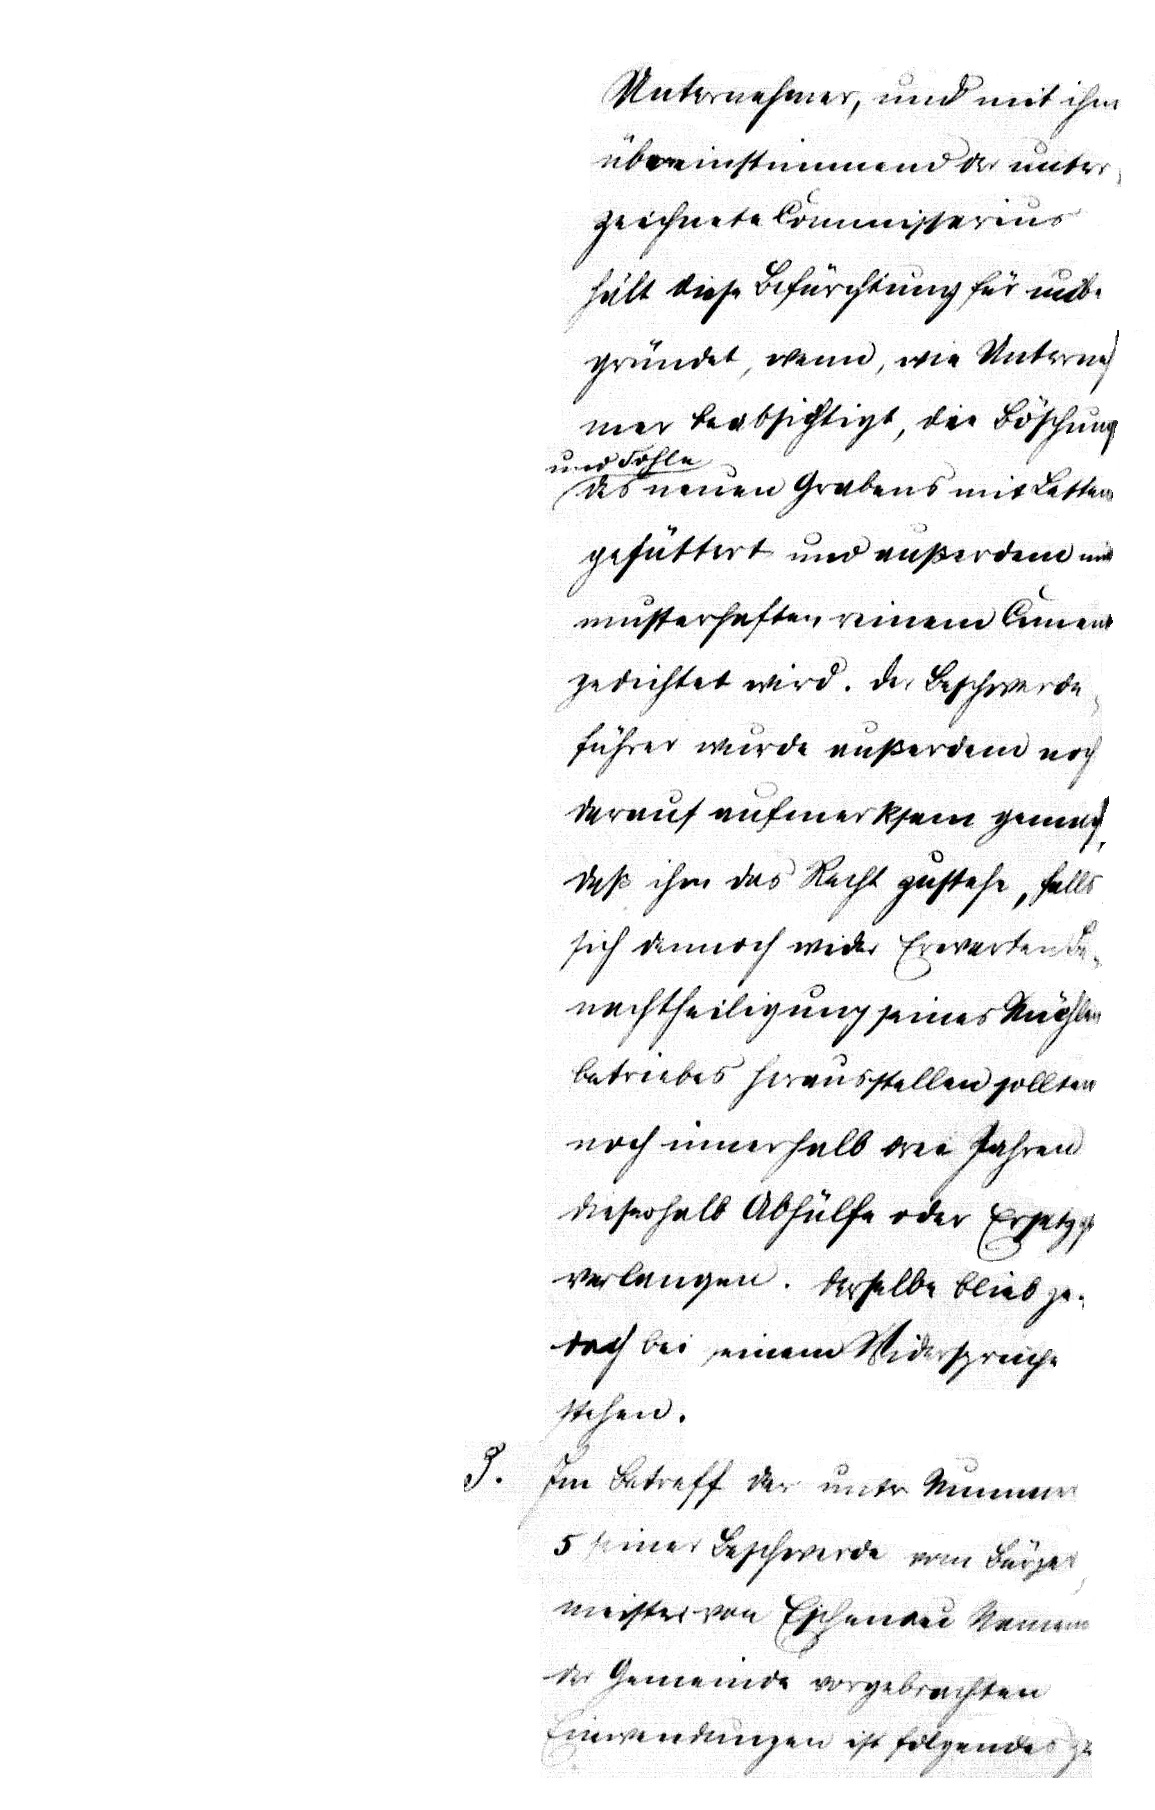 Unternehmer, und mit ihm
übereinstimmend der unter-
zeichnete Commissarius
hält diese Befürchtung für unbe-
gründet, wenn, wie Unterneh
mer beabsichtigt, die Böschung
und Sohle
des neuen Grabens mit Letten
gefüttert und außerdem mit
musterhaften reinem Cement
gedichtet wird. Der Beschwerde-
führer wurde außerdem noch
darauf aufmerksam gemacht,
daß ihm das Recht zustehe, falls
sich dennoch wider Erwarten Be-
nachtheiligung seines Mühlen
betriebes herausstellen sollten
noch innerhalb drei Jahren
dieserhalb Abhülfe oder Ersatz zu
verlangen. Derselbe blieb je-
doch bei seinem Widerspruche
stehen.
Im Betreff der unter Nummer
5 seiner Beschwerde vom Bürger-
meister von Eschenau Namens
der Gemeinde vorgebrachten
Einwendungen ist folgendes zu